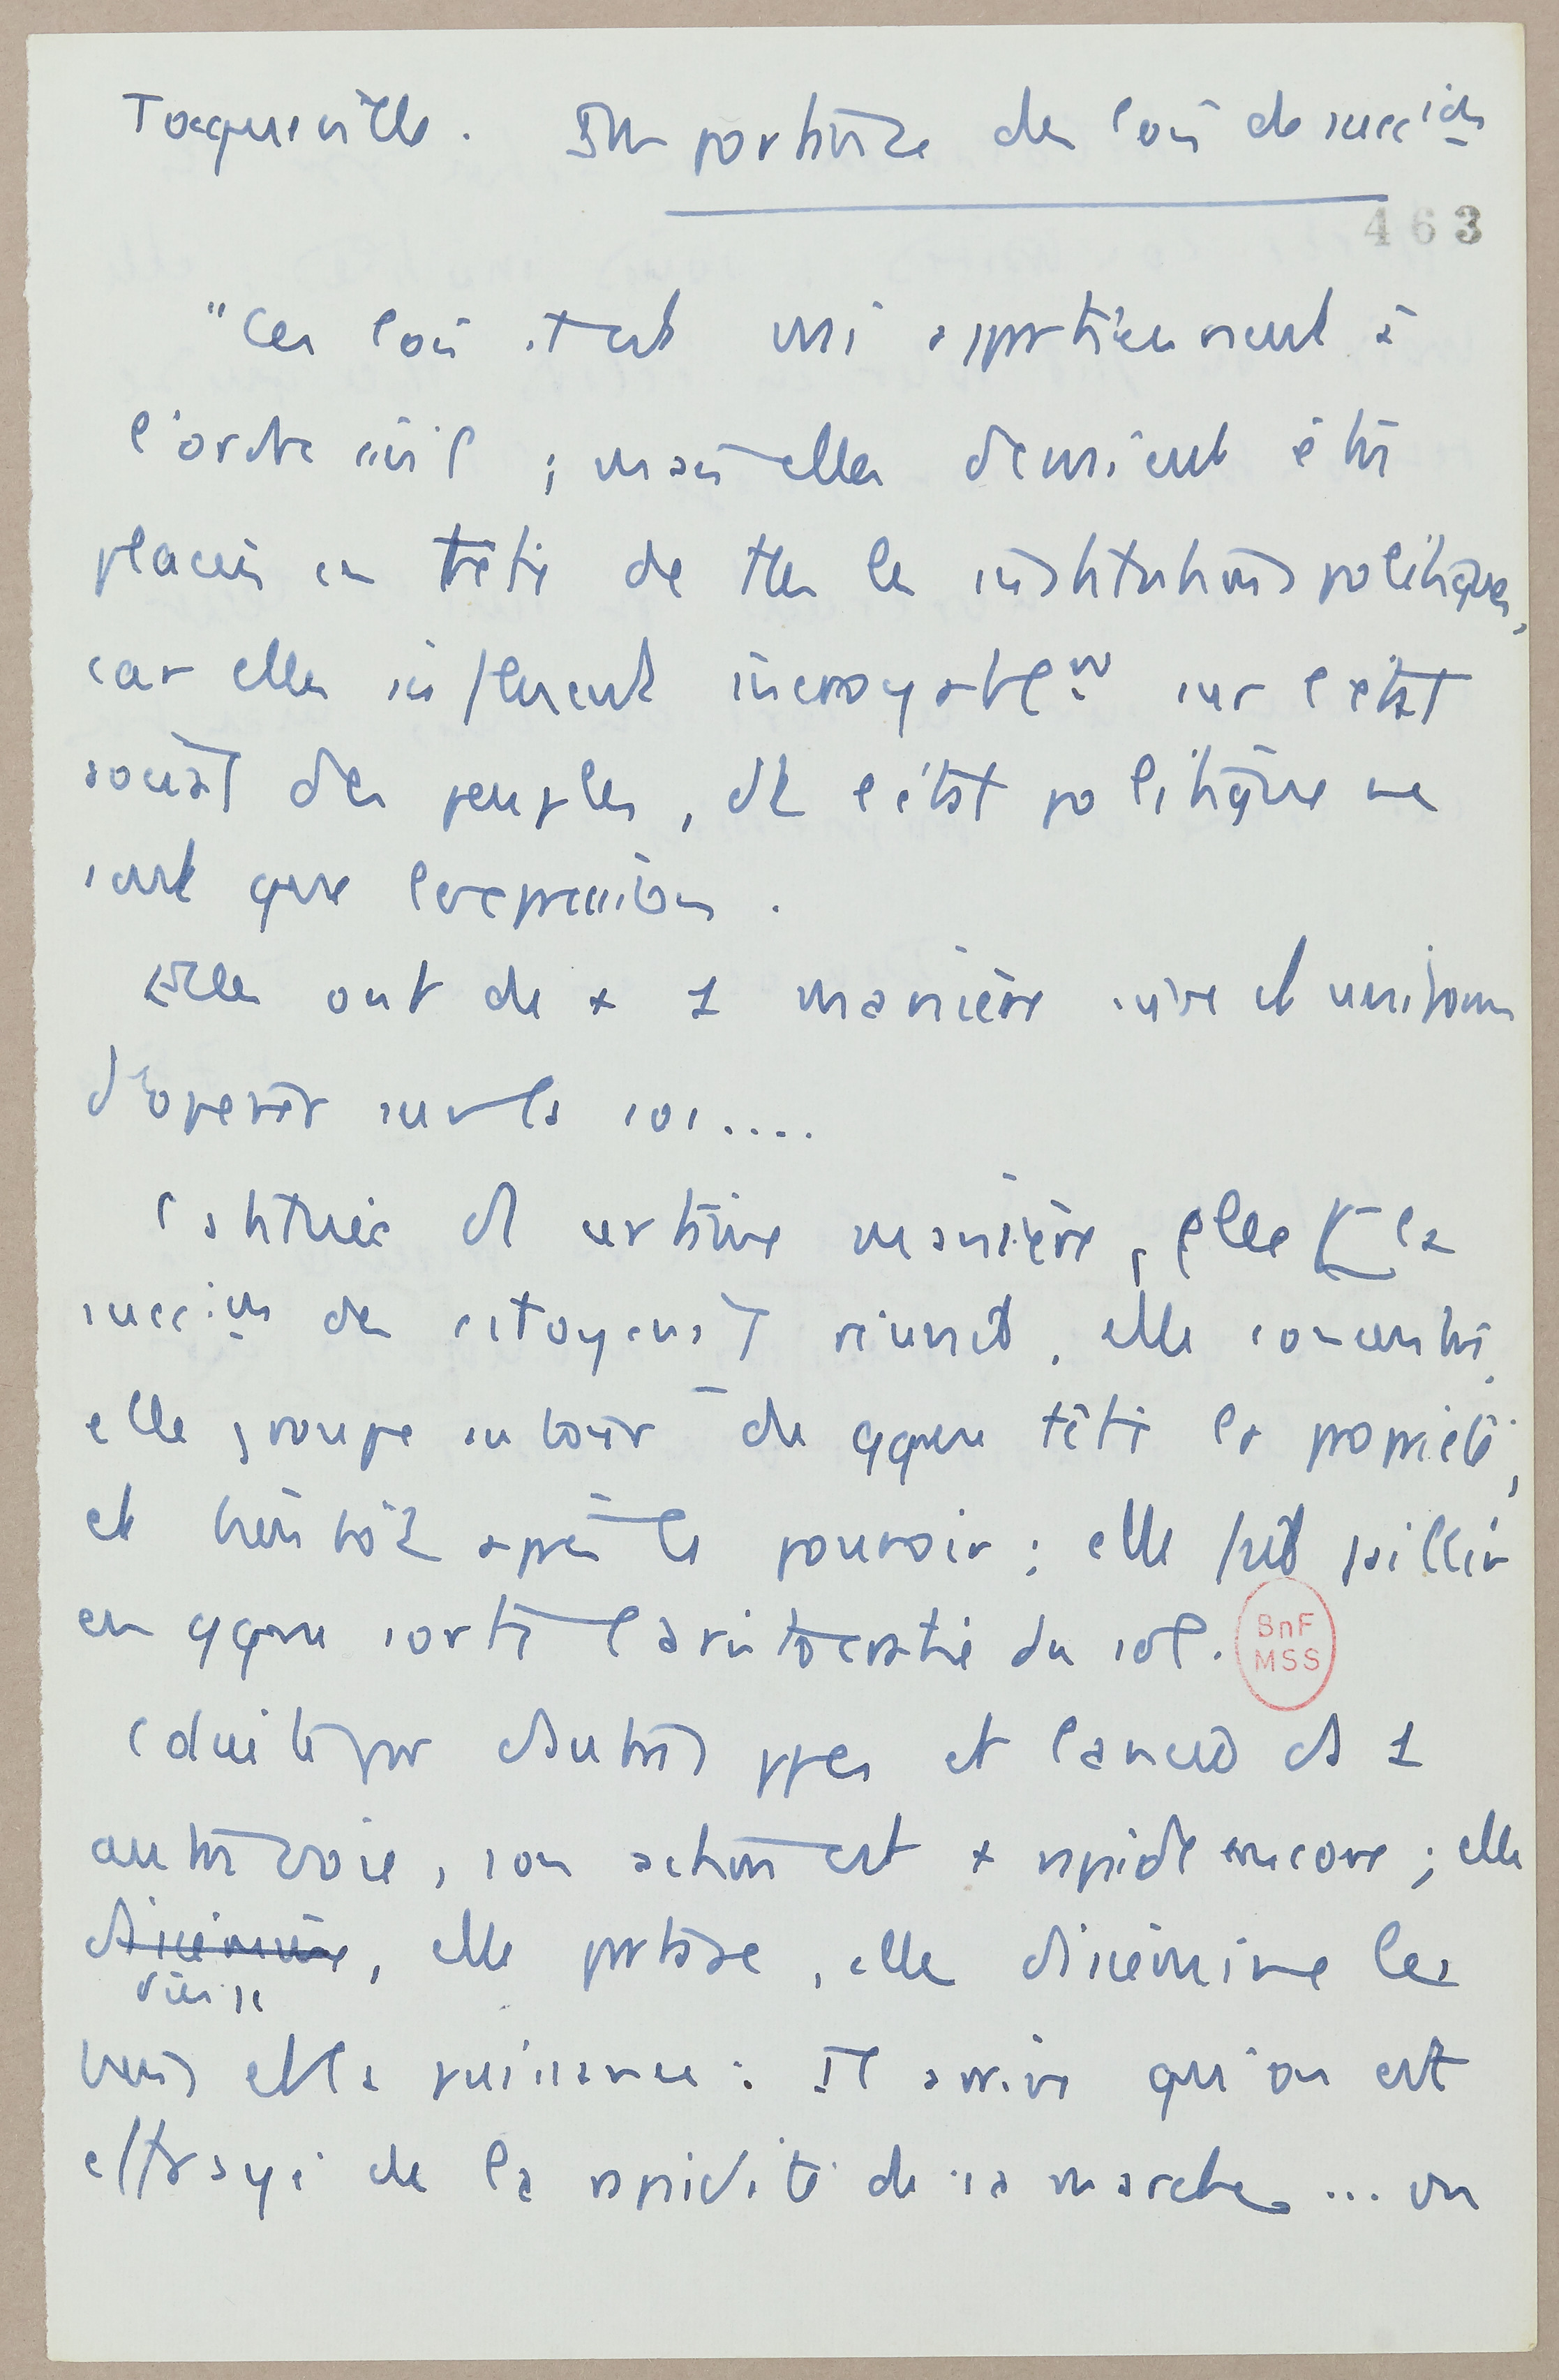 Tocqueville. Importance des lois de succ^ion
463
"Ces lois, il est vrai appartiennent à
l'ordre civil ; mais elles devraient être
placées en tête de ttes les institutions politiques,
car elles influent incroyabl^mt sur l'état
social des peuples, dt l'état politique ne
sont que l'expression.
Elles ont de + 1 manière sûre et uniforme
d'opérer sur la soc....
Constituée d certaine manière, elle la
succ^ion des citoyens réunit, elle concentre,
elle groupe autour de qque tête la propriété,
et bientôt après le pouvoir ; elle fait jaillir
en qque sorte l'aristocratie du sol.
BnF
MSS
Cduite par d'autres ppes et lancée ds 1
autre voie, son action est + rapide encore ; elle
divise
, elle partage, elle dissémine les
biens et la puissance : Il arrive qu'on est
effrayé de la rapidité de sa marche ... on